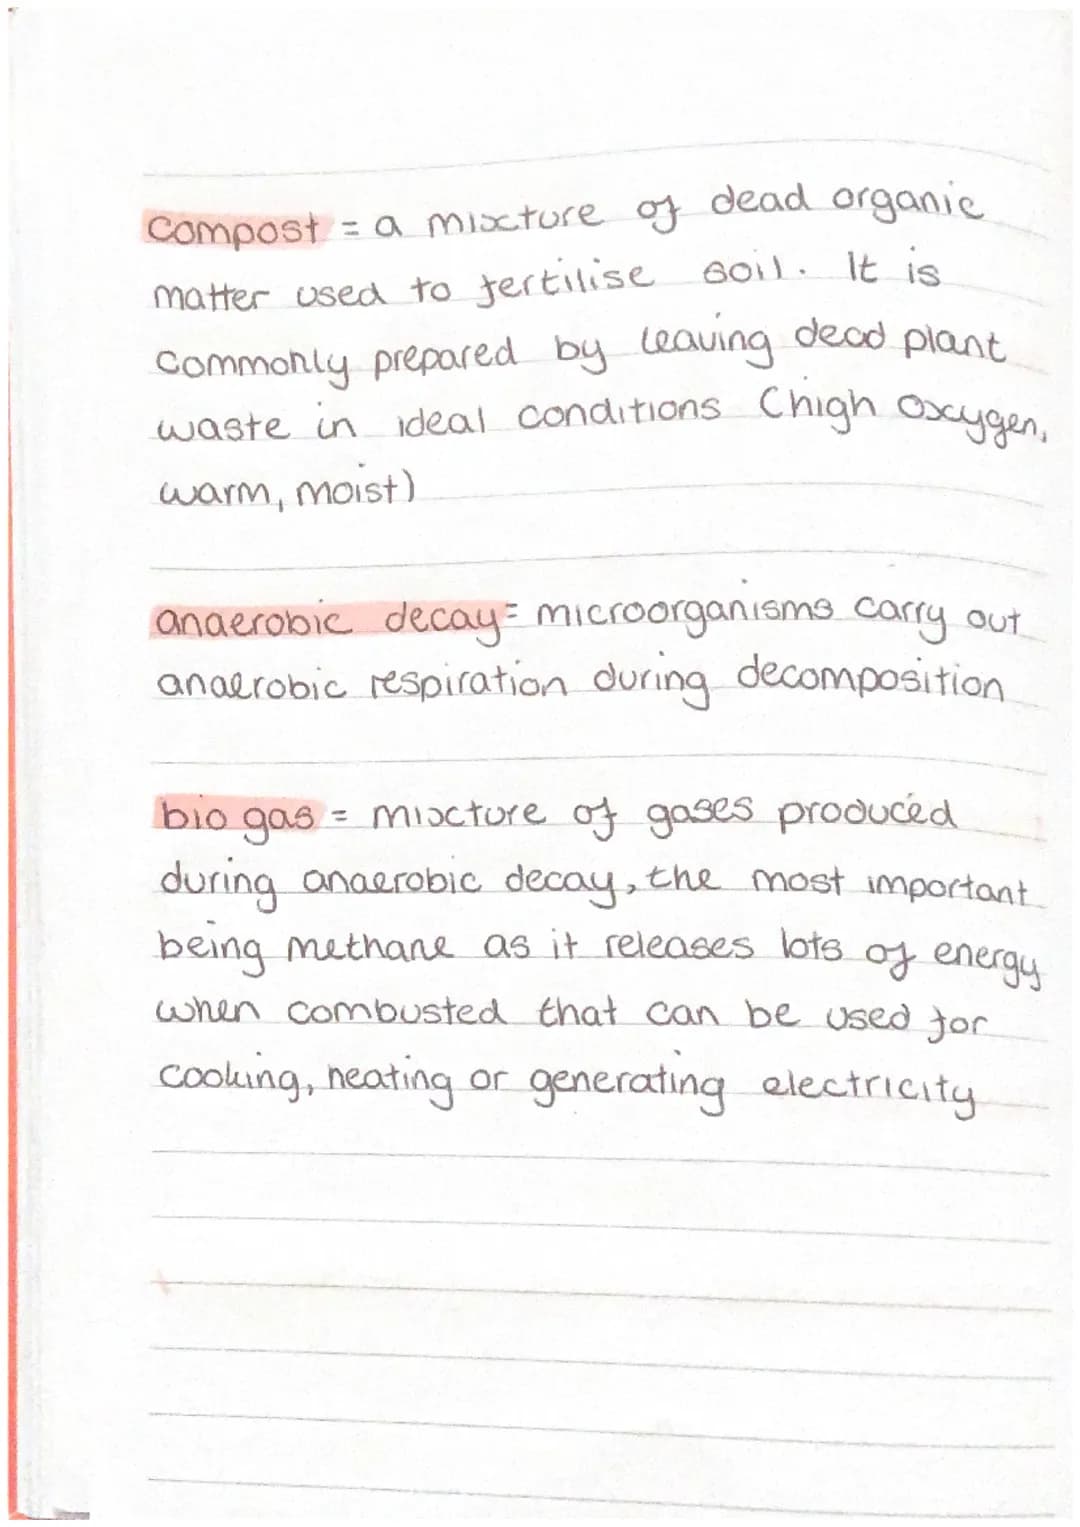 compost = a mixture of dead organic
matter used to fertilise soil. It is
commonly prepared by leaving dead plant
waste in ideal conditions (high oxygen,
warm, moist)
anaerobic decay = microorganisms carry out
anaerobic respiration during decomposition
bio gas = mixture of gases produced
during anaerobic decay, the most important
being methane as it releases lots of energy
when combusted that can be used for
cooking, heating or generating electricity